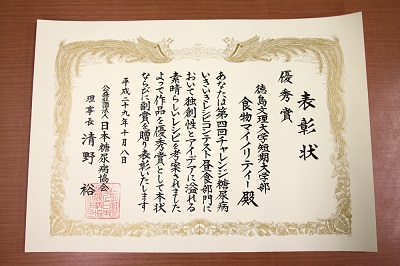 表彰状
優秀賞
徳島文理大学短期大学部
食物マイノリティー殿
あなたは第四回チャレンジ糖尿病
いきいきレシピコンテスト昼食部門に
おいて独創性とアイデアに溢れる
素晴らしいレシピを考案されました
よって作品を優秀賞として本状
ならびに副賞を贈り表彰いたします
平成二十九年十月八日
公益社団法人日本糖尿病協会
理事長 清野 裕